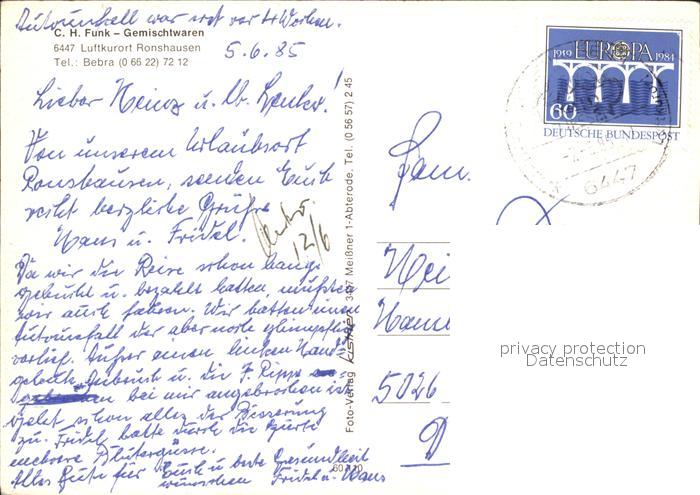 Autounfall war erst vor 4 Wochen.
C. H. Funk – Gemischtwaren
6447 Luftkurort Ronshausen
Tel.: Bebra (0 66 22) 72 12
5.6.85
Lieber Heinz u.
Von unserem Urlaubsort
Ronshausen, senden Euch
recht herzliche Grüße
Hans u. Fridel.
12/6
Da wir die Reise schon lange
gebucht u. bezahlt hatten, mußten
wir auch fahren. Wir hatten einen
Autounfall der aber noch glimpflich
verlief. Außer einen linken Hand-
gelenk Anbruch u. die 7. Rippe
bei mir angebrochen ist
jetzt schon alles der Besserung
zu. Fridel hatte durch die Gurte
mehrere Blutergüsse.
Alles Gute für Euch u. beste Gesundheit
wünschen Fridel u. Hans
Foto-Verlag 3447 Meißner 1-Abterode. Tel. (0 56 57) 2 45
60 110
1959 EUROPA 1984
60
DEUTSCHE BUNDESPOST
6447
Fam.
Hei
5026
D
privacy protection
Datenschutz